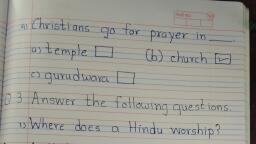 Christians go for prayer in ___.
a) temple (b) church
c) gurudwara
Q 3 Answer the following questions.
1) Where does a Hindu worship?